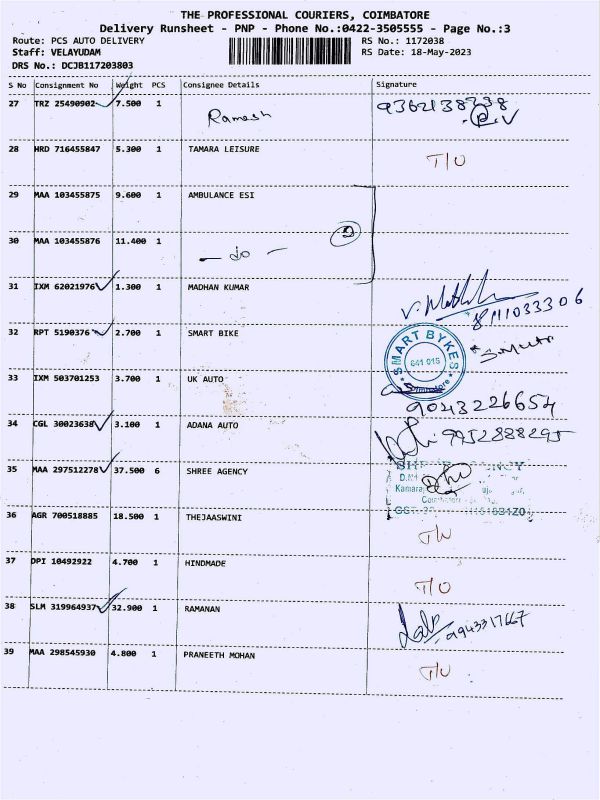 THE PROFESSIONAL COURIERS, COIMBATORE
Delivery Runsheet - PNP - Phone No.:0422-3505555 - Page No.:3
Route: PCS AUTO DELIVERY
RS No.: 1172038
Staff: VELAYUDAM
RS Date: 18-May-2023
DRS No.: DCJB117203803
S No Consignment No Weight PCS Consignee Details Signature
27 TRZ 25490902 7.500 1 Ramesh
28 HRD 716455847 5.300 1 TAMARA LEISURE T/O
29 MAA 103455875 9.600 1 AMBULANCE ESI
30 MAA 103455876 11.400 1 - do - 2
31 IXM 62021976 1.300 1 MADHAN KUMAR 8111033306
32 RPT 5190376 2.700 1 SMART BIKE
SMART BYKES
641 015
Coimbatore
33 IXM 503701253 3.700 1 UK AUTO 9043226654
34 CGL 30023638 3.100 1 ADANA AUTO 9952888295
35 MAA 297512278 37.500 6 SHREE AGENCY
36 AGR 700518885 18.500 1 THEJAASWINI
37 DPI 10492922 4.700 1 HINDMADE T/O
38 SLM 319964937 32.900 1 RAMANAN 9943317667
39 MAA 298545930 4.800 1 PRANEETH MOHAN T/O